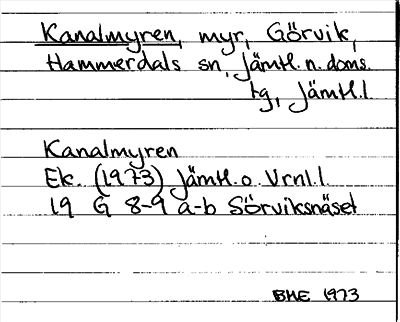 Kanalmyren, myr, Görvik,
Hammerdals sn, Jämtl. n. doms.
tg, Jämtl.l.
Kanalmyren
Ek. (1973) Jämtl. o. Vrnl.l.
19 G 8-9 a-b Sörviksnäset
BME 1973